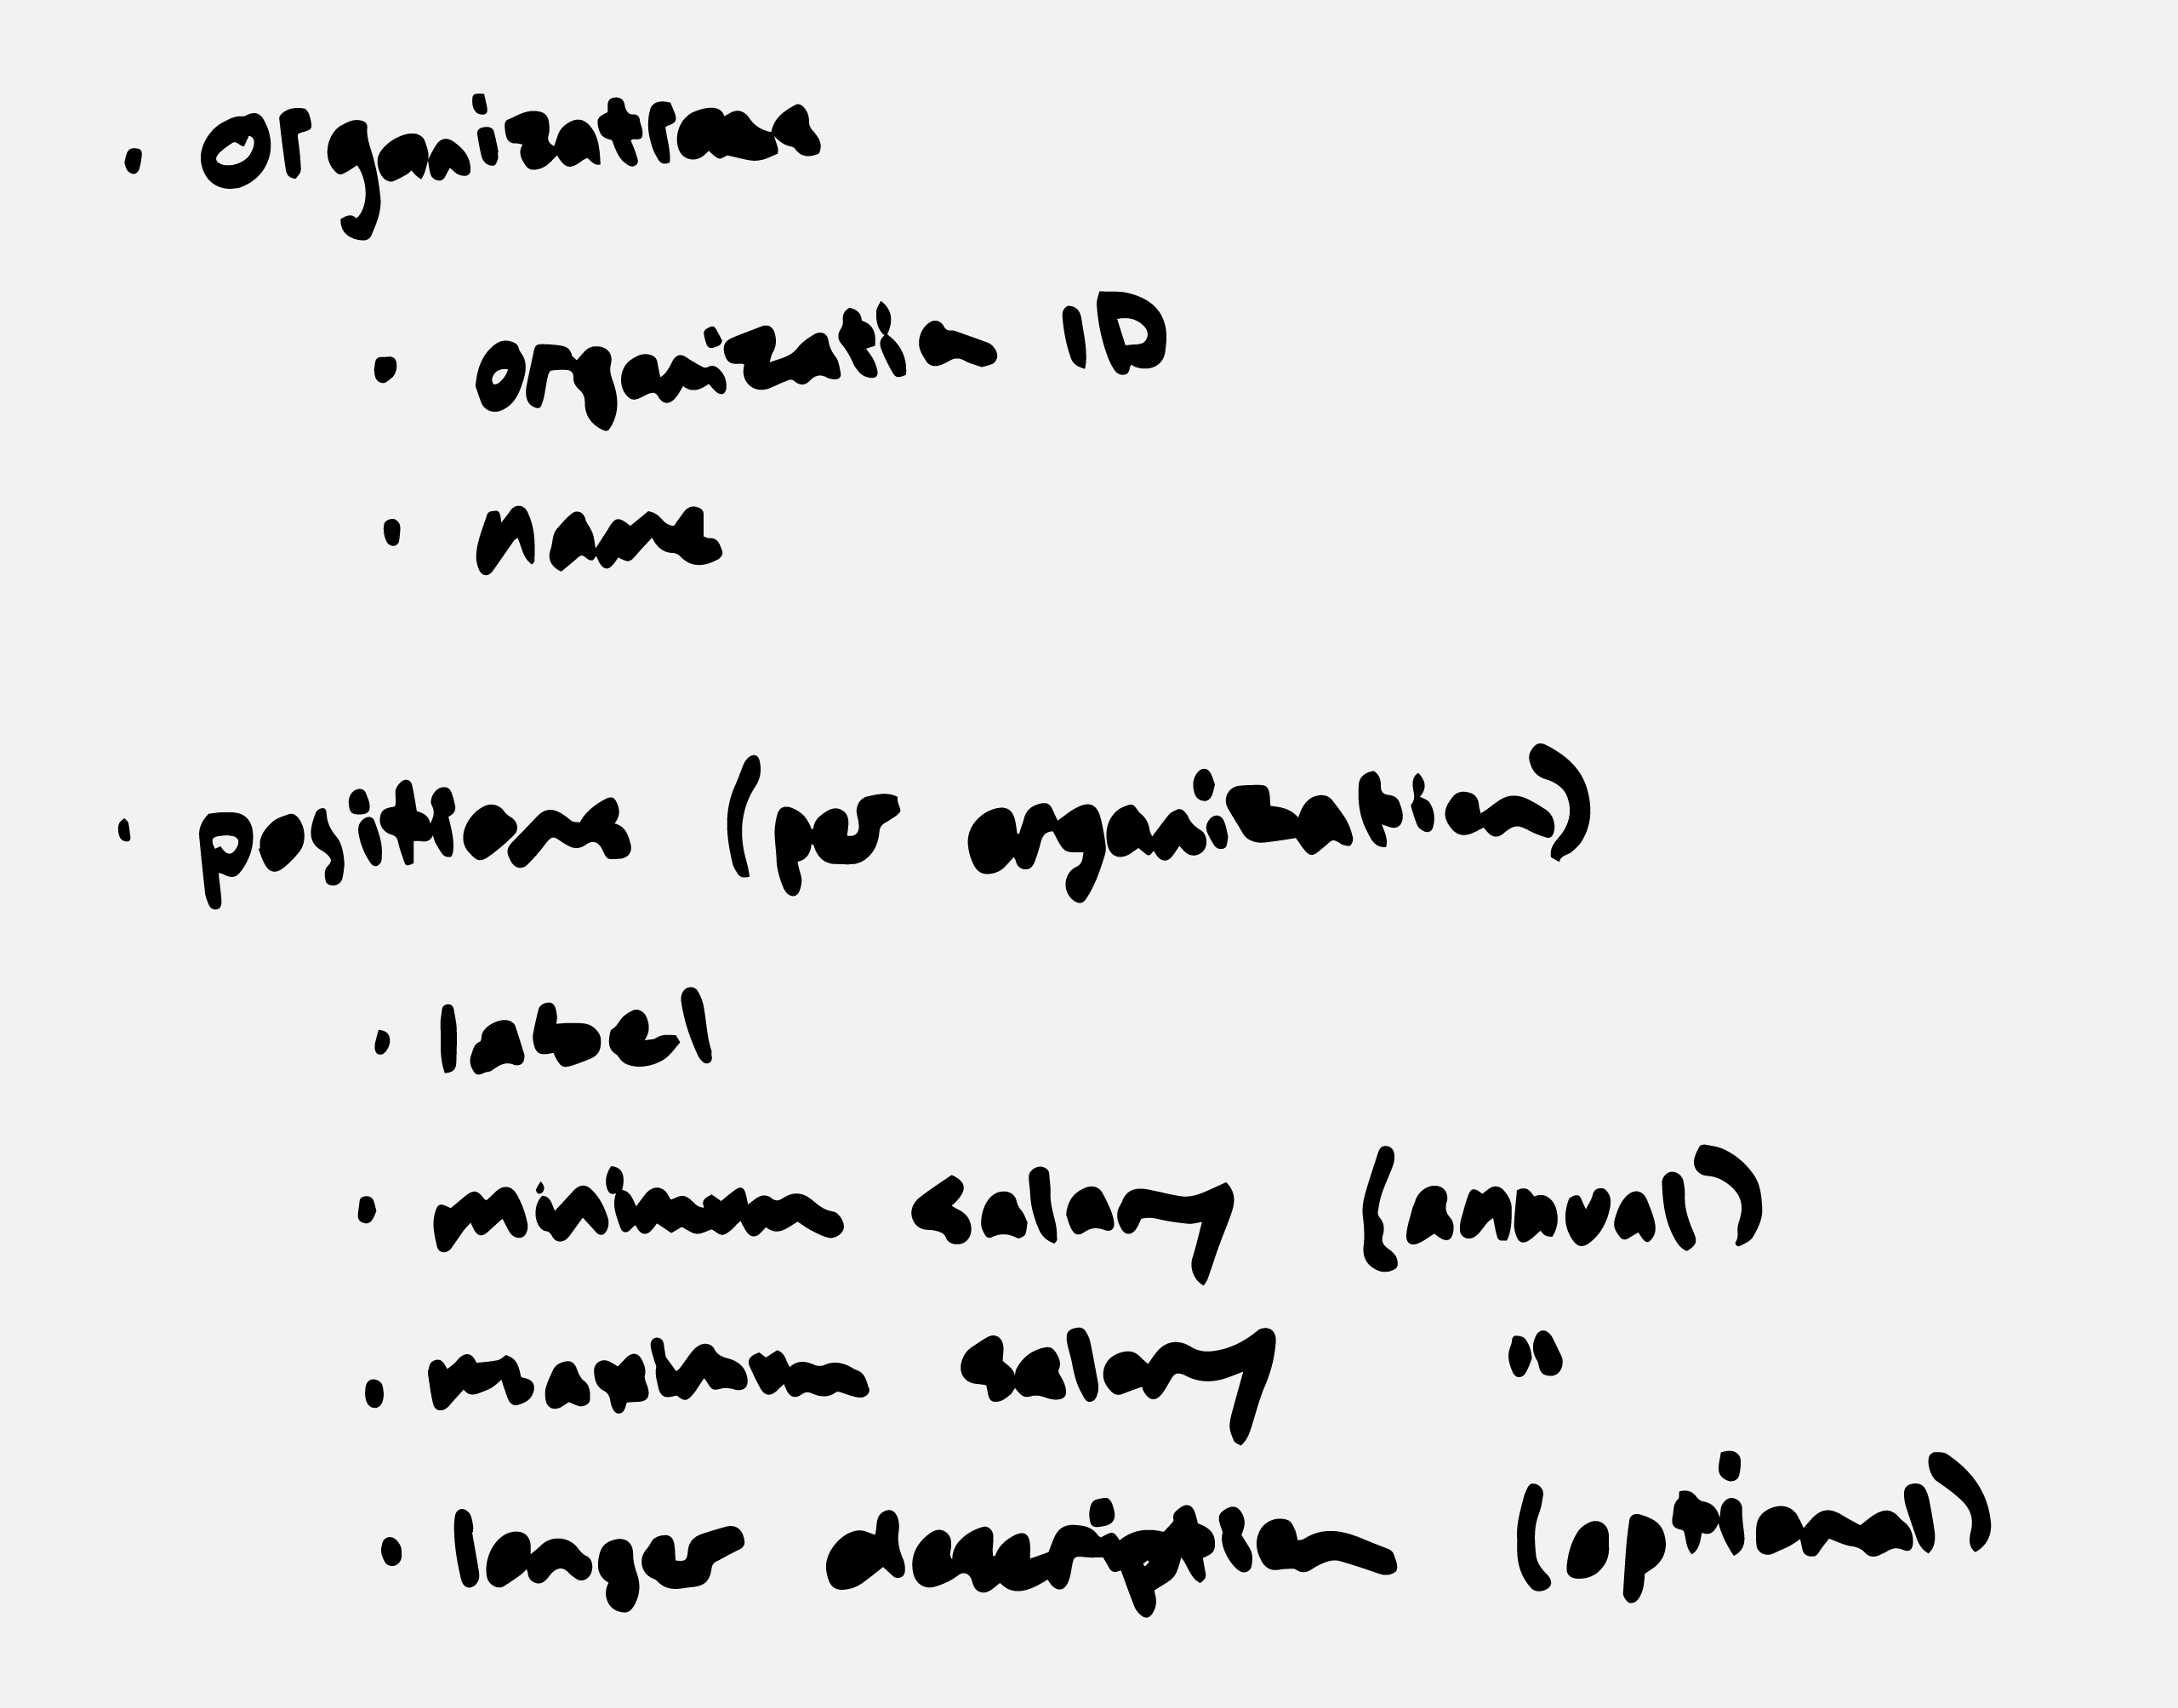 · organizations
· organization ID
· name
· positions (per organization)
· label
· minimum salary (annual)
· maximum salary "
· longer description (optional)